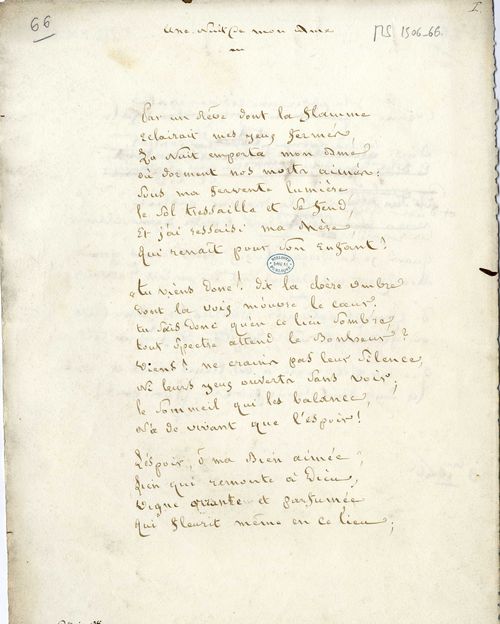 66
I.
MS 1506-66.
Une Nuit de mon Ame
Par un Rêve dont la flamme
Eclairait mes yeux fermés,
La Nuit emporta mon Ame
où dorment nos morts aimés.
Sous ma fervente lumière
le Sol tressaille et se fend,
Et j'ai ressaisi ma Mère,
Qui renaît pour son Enfant !
« tu viens donc ! dit la chère ombre
dont la voix m'ouvre le cœur,
tu sais donc qu'en ce lieu sombre,
tout spectre attend le Bonheur ?
Viens ! ne crains pas leur silence,
Ni leurs yeux ouverts sans voir ;
le sommeil qui les balance,
N'a de vivant que l'espoir !
L'espoir, ô ma Bien aimée ;
Lien qui remonte à Dieu,
Vigne errante et parfumée
qui fleurit même en ce lieu ;